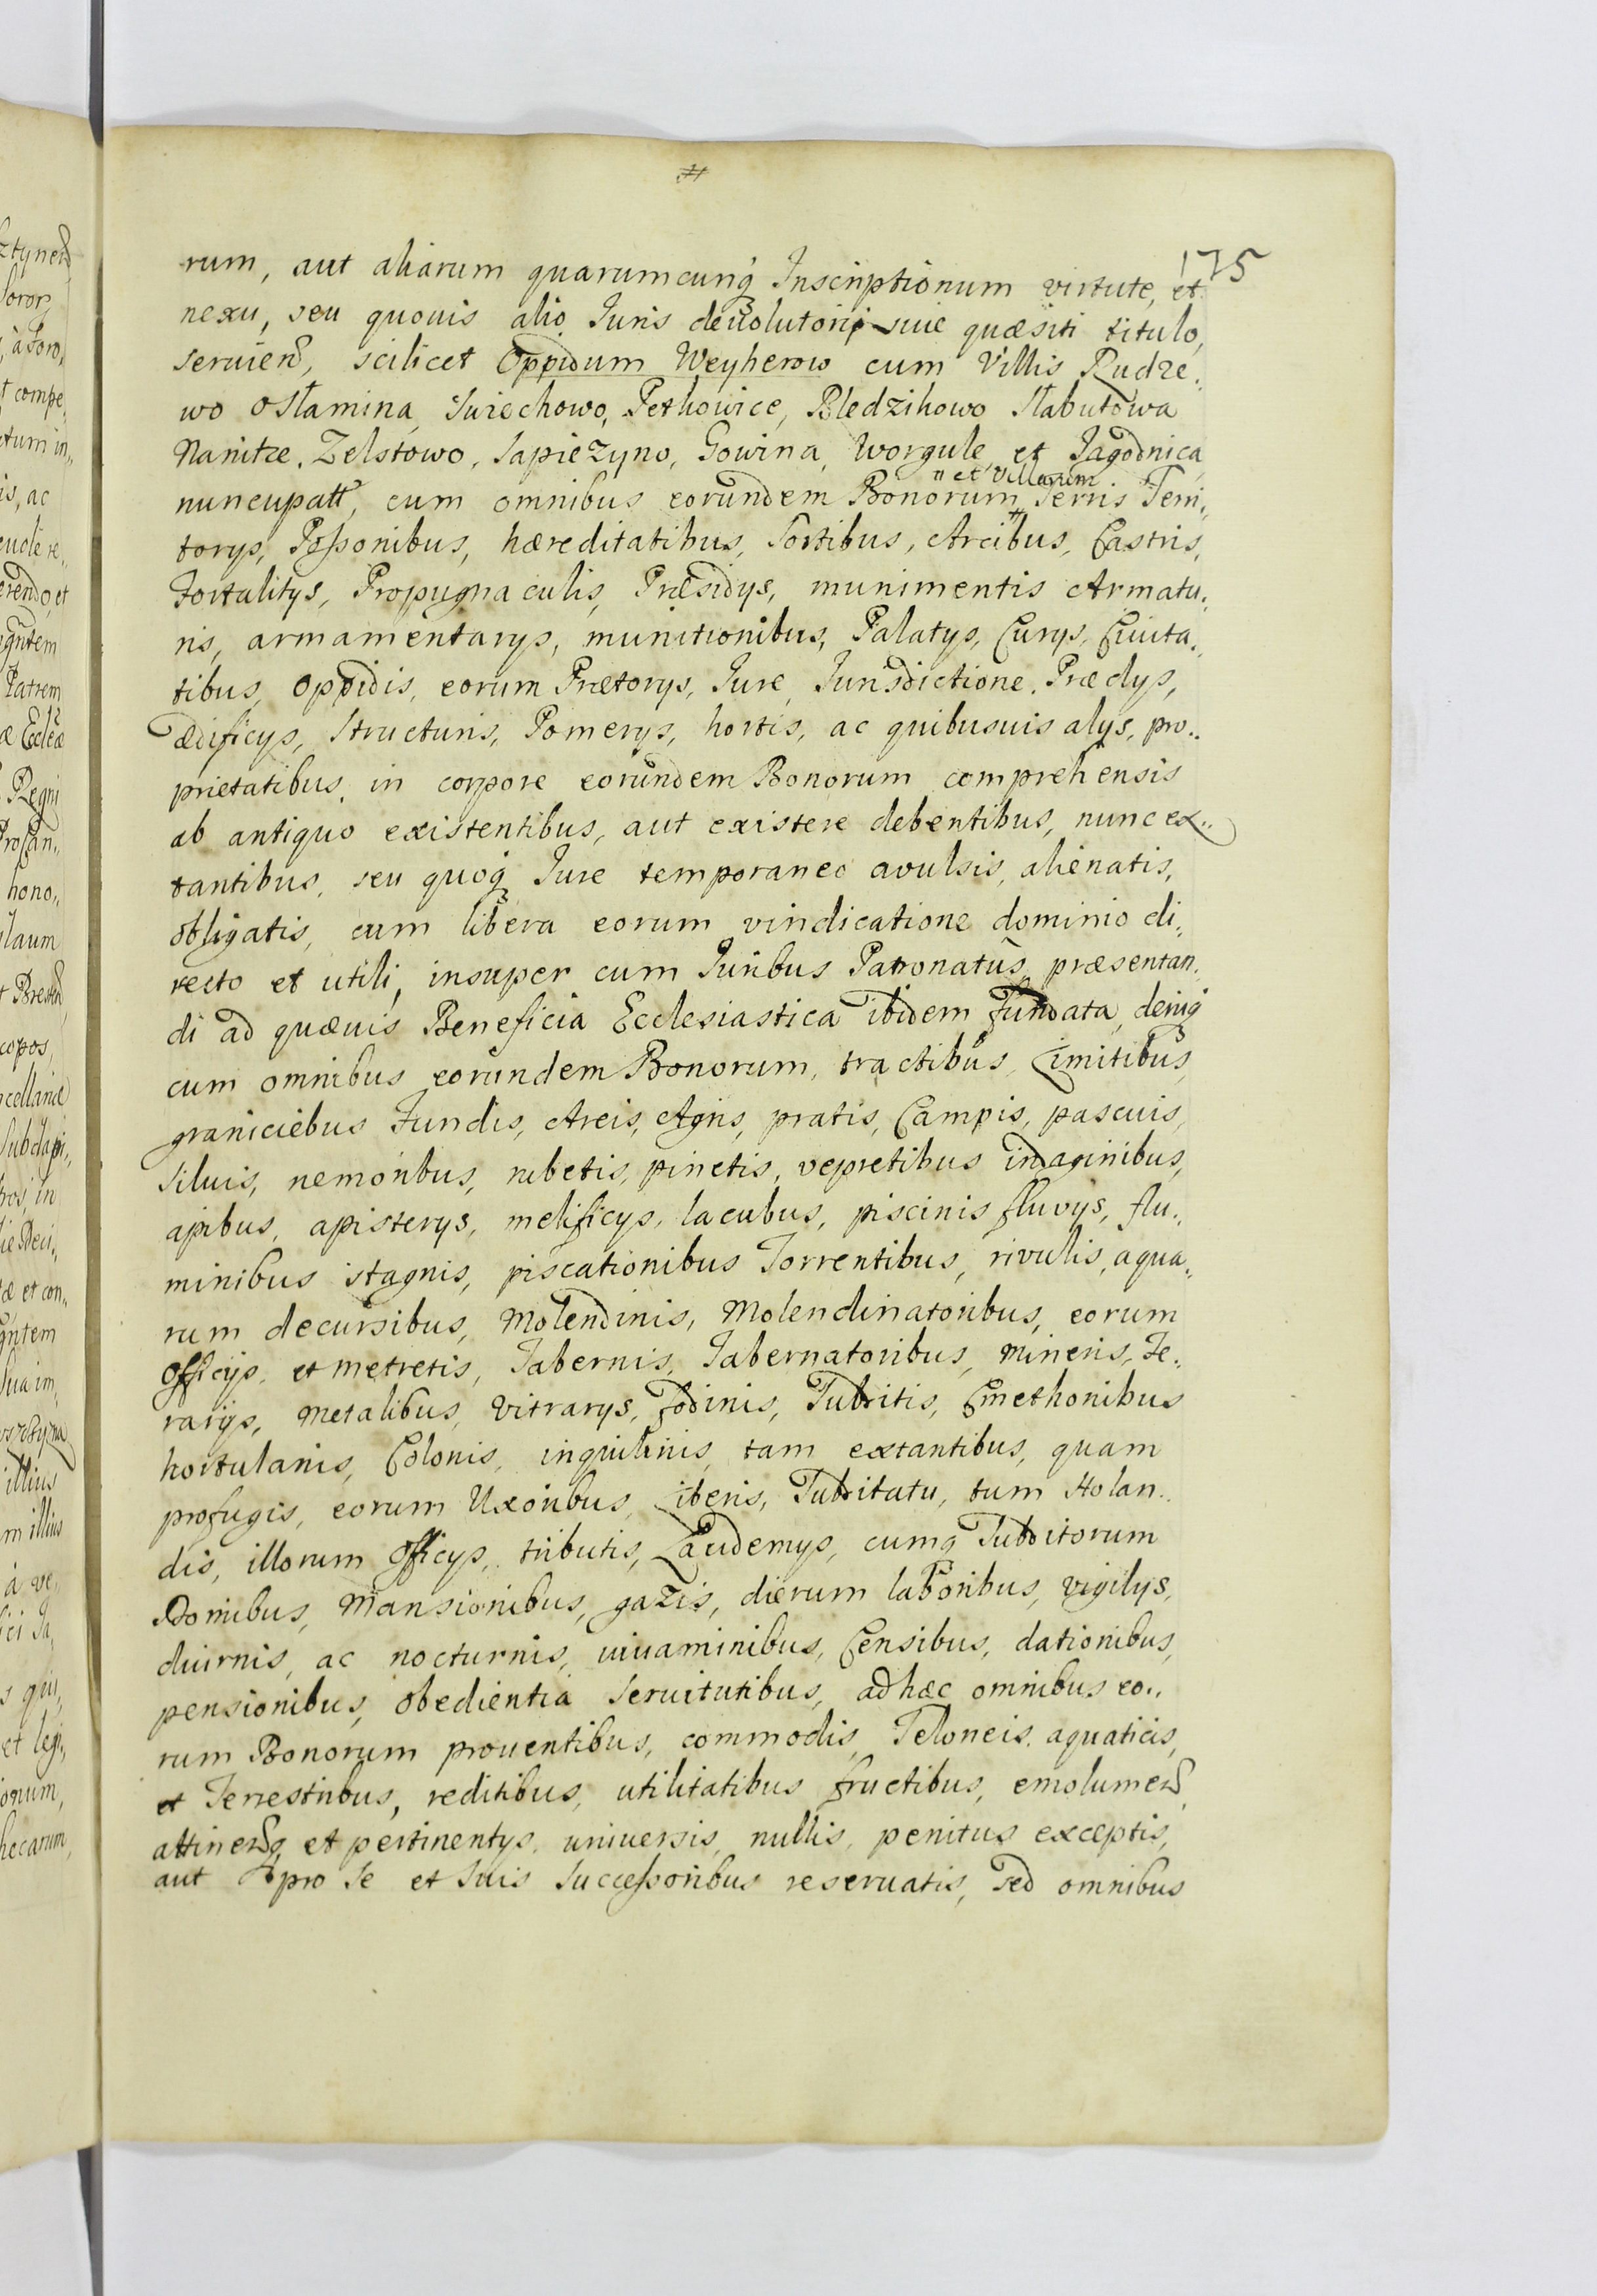 175
rum, aut aliarum quarumcunq Inscriptionum virtute, et
nexu, seu quouis alio Juris deuolutorij siue quæsiti titulo,
seruien, scilicet Oppidum Weyherow cum Villis Rudze„
wo Ostamina, Swiechowo, Pethowice, Bledzihowo Slabutowa
Nanitze, Zelstowo, Sapiezyno, Gowina, Worgule, et Jagodnica
nuncupatt, cum omnibus eorundem Bonorum „ et Villarum Terris Terri„
torys, Possonibus, hæreditatibus, Sortibus, Arcibus, Castris,
Fortalitys, Propugnaculis, Præsidys, munimentis Armatu„
ris, armamentarys, munitionibus, Palatys, Curys, Ciuita„
tibus, oppidis, eorum Prætorys, Jure, Jurisdictione, Prædys,
ædificys, Structuris, Pomerys, hortis, ac quibusuis alys, pro„
prietatibus, in corpore eorundem Bonorum comprehensis
ab antiquo existentibus, aut existere debentibus, nunc ex„
tantibus, seu quoq Jure temporaneo avulsis, alienatis,
obligatis, cum libera eorum vindicatione dominio di„
recto et utili, insuper cum Juribus Patronatus, præsentan„
di ad quæuis Beneficia Ecclesiastica ibidem fundata, deniq
cum omnibus eorundem Bonorum, tractibus, Limitibus,
graniciebus Fundis, Areis, Agris, pratis, Campis, pascuis,
Siluis, nemoribus, rubetis, pinetis, vepretibus indaginibus,
apibus, apisterys, melificys, lacubus, piscinis fluvys, flu„
minibus stagnis, piscationibus Torrentibus, rivulis, aqua„
rum decursibus, Molendinis, Molendinatoribus, eorum
officijs, et metretis, Tabernis, Tabernatoribus, mineris, Fe„
rarijs, metalibus, Vitrarys, fodinis, Subditis, Cmethonibus
hortulanis, Colonis, inquilinis, tam extantibus, quam
profugis, eorum Uxoribus, Liberis, Subditatu, tum Holan„
dis, illorum officys, tributis, Laudemys, cumq Subditorum
Domibus, Mansionibus, gazis, dierum laboribus, vigilys,
diuirnis, ac nocturnis, iuuaminibus, Censibus, dationibus,
pensionibus, obedientia Seruitutibus, ad hæc omnibus eo„
rum Bonorum prouentibus, commodis, Teloneis, aquaticis,
et Terrestribus, reditibus, utilitatibus fructibus, emolumen,
attinen, et pertinentys, uniuersis, nullis, penitus exceptis,
aut pro Se et Suis Successoribus reseruatis, Sed omnibus